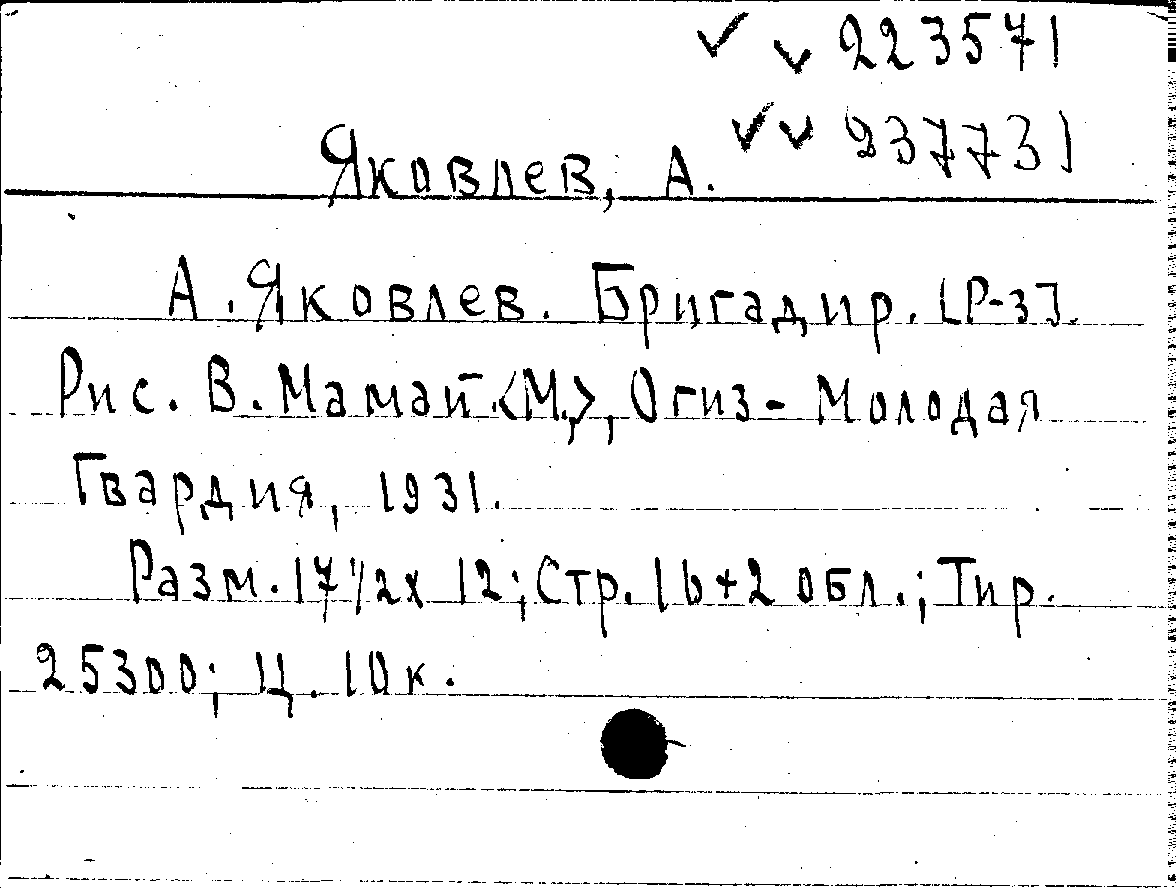 ✓ ✓ 223571
✓ ✓ 237731
Яковлев, А.
А. Яковлев. Бригадир. [Р-з].
Рис. В. Мамай. <М.>, Огиз - Молодая
Гвардия, 1931.
Разм. 17 1/2 х 12; Стр. 16+2 обл.; Тир.
25300; Ц. 10 к.